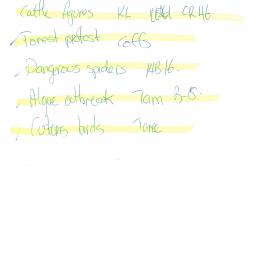 Cattle figures KL CR46.
Forest protest Coffs
Dangrous spiders
Algae outbreak 7am 3-8.
birds Taree